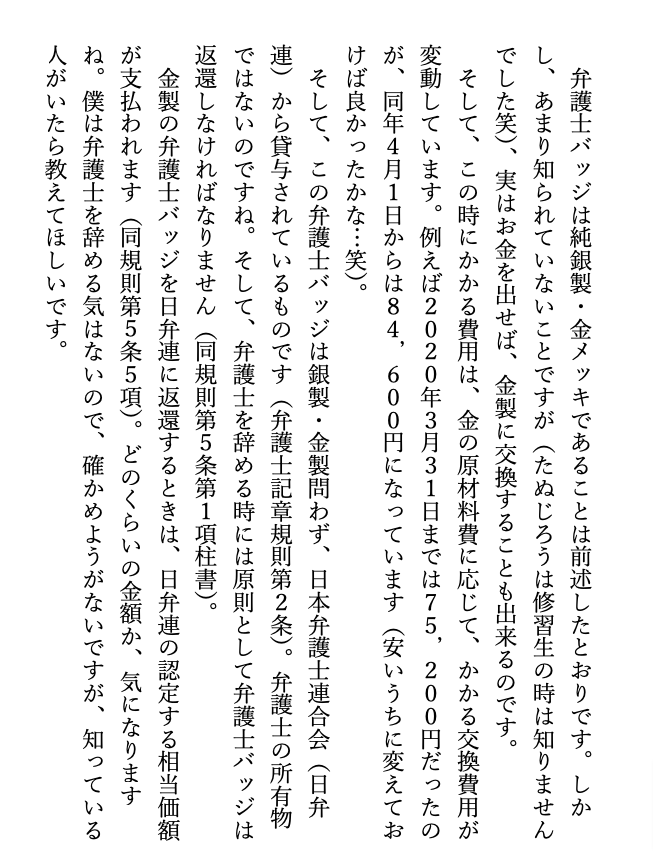 弁護士バッジは純銀製・金メッキであることは前述したとおりです。しか
し、あまり知られていないことですが（たぬじろうは修習生の時は知りません
でした笑）、実はお金を出せば、金製に交換することも出来るのです。
　そして、この時にかかる費用は、金の原材料費に応じて、かかる交換費用が
変動しています。例えば２０２０年３月３１日までは７５，２００円だったの
が、同年４月１日からは８４，６００円になっています（安いうちに変えてお
けば良かったかな…笑）。
　そして、この弁護士バッジは銀製・金製問わず、日本弁護士連合会（日弁
連）から貸与されているものです（弁護士記章規則第２条）。弁護士の所有物
ではないのですね。そして、弁護士を辞める時には原則として弁護士バッジは
返還しなければなりません（同規則第５条第１項柱書）。
　金製の弁護士バッジを日弁連に返還するときは、日弁連の認定する相当価額
が支払われます（同規則第５条５項）。どのくらいの金額か、気になります
ね。僕は弁護士を辞める気はないので、確かめようがないですが、知っている
人がいたら教えてほしいです。